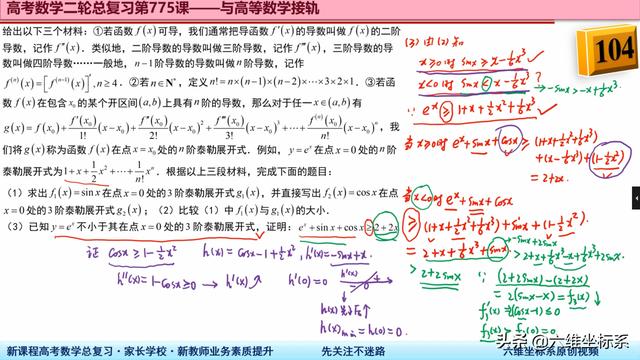 高考数学二轮总复习第775课——与高等数学接轨
104
给出以下三个材料:①若函数f(x)可导,我们通常把导函数f'(x)的导数叫做f(x)的二阶
导数,记作f''(x).类似地,二阶导数的导数叫做三阶导数,记作f'''(x),三阶导数的导
数叫做四阶导数……一般地,n-1阶导数的导数叫做n阶导数,记作
f^(n)(x)=[f^(n-1)(x)]',n≥4.②若n∈N*,定义n!=n×(n-1)×(n-2)×⋯×3×2×1.③若函
数f(x)在包含x₀的某个开区间(a,b)上具有n阶的导数,那么对于任一x∈(a,b)有
g(x)=f(x₀)+f'(x₀)/1!(x-x₀)+f''(x₀)/2!(x-x₀)²+f'''(x₀)/3!(x-x₀)³+⋯+f^(n)(x₀)/n!(x-x₀)ⁿ,我
们将g(x)称为函数f(x)在点x=x₀处的n阶泰勒展开式.例如,y=eˣ在点x=0处的n阶
泰勒展开式为1+x+1/2x²+⋯+1/n!xⁿ.根据以上三段材料,完成下面的题目:
(1)求出f₁(x)=sinx在点x=0处的3阶泰勒展开式g₁(x),并直接写出f₂(x)=cosx在点
x=0处的3阶泰勒展开式g₂(x);(2)比较(1)中f₁(x)与g₁(x)的大小.
(3)已知y=eˣ不小于其在点x=0处的3阶泰勒展开式,证明:eˣ+sinx+cosx≥2+2x.
证 cosx≥1-½x² h(x)=cosx-1+½x², h'(x)=-sinx+x.
h''(x)=1-cosx≥0 ∴h'(x)↗ h'(0)=0
h'(x)
0
h(x)min=h(0)=0
(3) 由(2)知
x≥0时 sinx≥x-⅙x³
x<0时 sinx<x-⅙x³ ? →-sinx>-x+⅙x³
∵eˣ≥1+x+½x²+⅙x³
当x≥0时 eˣ+sinx+cosx≥(1+x+½x²+⅙x³)
+(x-⅙x³)+(1-½x²)
=2+2x.
当x<0时 eˣ+sinx+cosx
≥(1+x+½x²+⅙x³)+sinx+(1-½x²)
=2+x+⅙x³+sinx -sinx+2sinx
>2+x+⅙x³-x+⅙x³+2sinx
>2+2sinx ∵(2+2sinx)-(2+2x)
=2(sinx-x)=f₃(x)
新课程高考数学总复习·家长学校·新教师业务素质提升
先关注不迷路
六维坐标系原创视频
头条 @六维坐标系